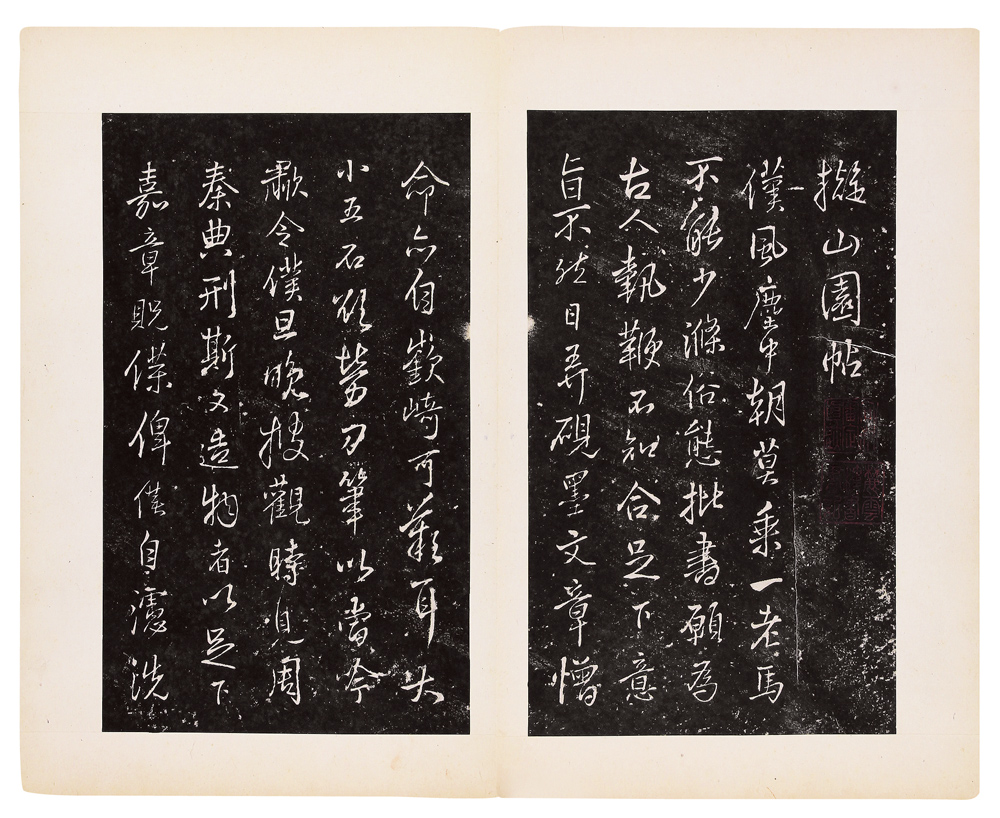 擬山園帖
僕風塵中朝莫乘一老馬
不能少滌俗態批書願為
古人執鞭不知合足下意
旨不然日弄硯墨文章憎
命亦自嶔崎可歎耳大
小五石欲勞刀筆以當吟
歗令僕旦晚捜觀時見周
秦典刑斯文造物者以足下
嘉章貺僕俾僕自濾洗